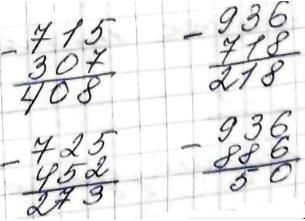 - 715
307
408
- 936
718
218
- 725
452
273
- 936
886
50